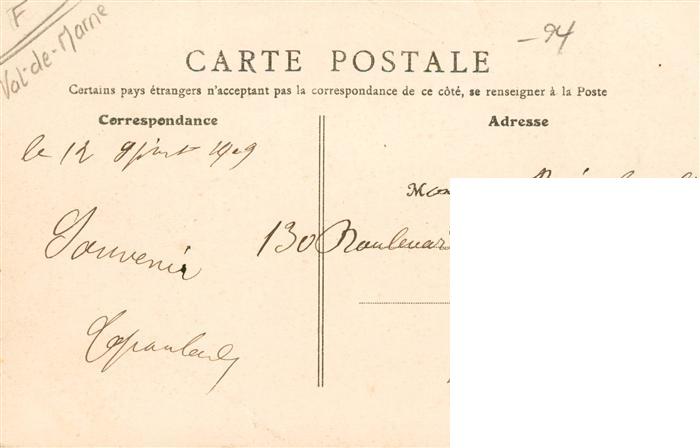 F
Val-de-Marne
-94
CARTE POSTALE
Certains pays étrangers n'acceptant pas la correspondance de ce côté, se renseigner à la Poste
Correspondance
Adresse
le 12
1909
Souvenir
130 Boulevar